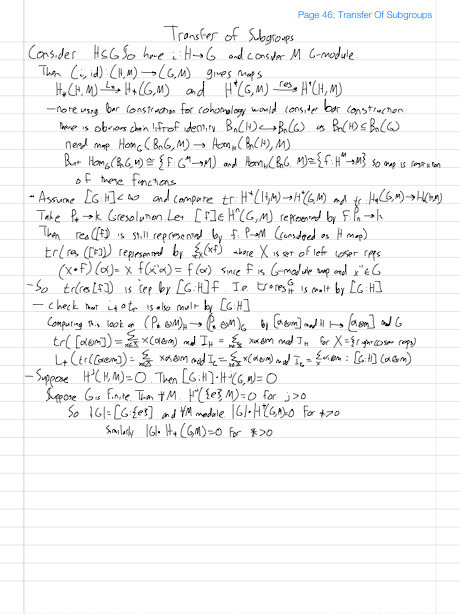 Page 46: Transfer Of Subgroups
Transfer of Subgroups
Consider H≤G So have i: H→G and consider M G-module
Then (i, id): (H, M) → (G, M) gives maps
H_*(H, M) → H_*(G, M) and H^*(G, M) →^res H^*(H, M)
- note using bar construction for cohomology would consider bar construction
there is obvious chain lift of identity B_n(H) ↪ B_n(G) as B_n(H) ≤ B_n(G)
need map Hom_G(B_nG, M) → Hom_H(B_n(H), M)
But Hom_G(B_nG, M) ≅ {f: G^n→M} and Hom_H(B_nG, M) ≅ {f: H^n→M} so map is restriction
of these functions
- Assume [G:H]<∞ and compute tr: H^*(H, M) → H^*(G, M) and tr: H_*(G, M) → H_*(H, M)
Take P_* → k G resolution. Let [f] ∈ H^n(G, M) represented by f: P_n →
Then res([f]) is still represented by f: P→M (considered as H map)
tr(res([f])) represented by Σ_{x∈X} (x·f) where X is set of left coset reps
(x·f)(α) = x f(x^{-1}α) = f(α) since f is G-module map and x^{-1}∈G
- So tr(res[f]) is rep by [G:H]f. I.e. tr∘res^G_H is mult by [G:H]
- check that i_*∘tr is also mult by [G:H]
Computing this look on (P_n⊗M)_H → (P_n⊗M)_G by [α⊗m] mod H ↦ [α⊗m] mod G
tr([α⊗m]) = Σ_{x∈X} x(α⊗m) mod I_H = Σ_{x∈X} xα⊗xm mod I_H for X={right coset reps}
L_*(tr([α⊗m])) = Σ xα⊗xm mod I_G = Σ x(α⊗m) mod I_G = Σ α⊗m = [G:H](α⊗m)
- Suppose H^j(H, M)=0. Then [G:H]·H^j(G, M)=0
Suppose G is finite. Then ∀M. H^j({e}, M)=0 for j>0
So |G|=[G:{e}] and ∀M module |G|·H^*(G,M)=0 for *>0
Similarly |G|·H_*(G,M)=0 for *>0